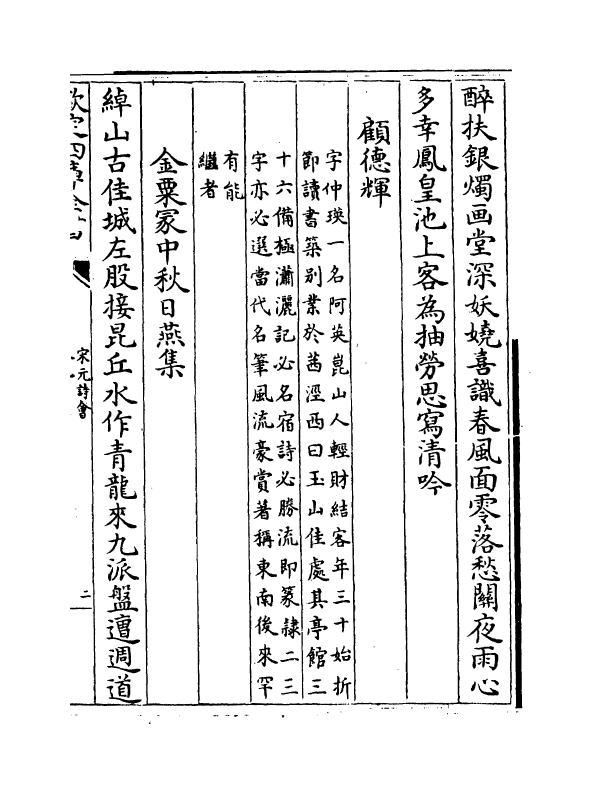 醉扶銀燭画堂深妖嬈喜識春風面零落愁關夜雨心
多幸鳳皇池上客為抽勞思寫清吟
顧德輝
字仲瑛一名阿英崑山人輕財結客年三十始折
節讀書築別業於茜涇西曰玉山佳處其亭館三
十六備極瀟灑記必名宿詩必勝流即篆隸二三
字亦必選當代名筆風流豪賞著稱東南後來罕
有能
繼者
金粟冢中秋日燕集
綽山古佳城左股接昆丘水作青龍來九派盤遭週道
欽定四庫全書
宋元詩會
二